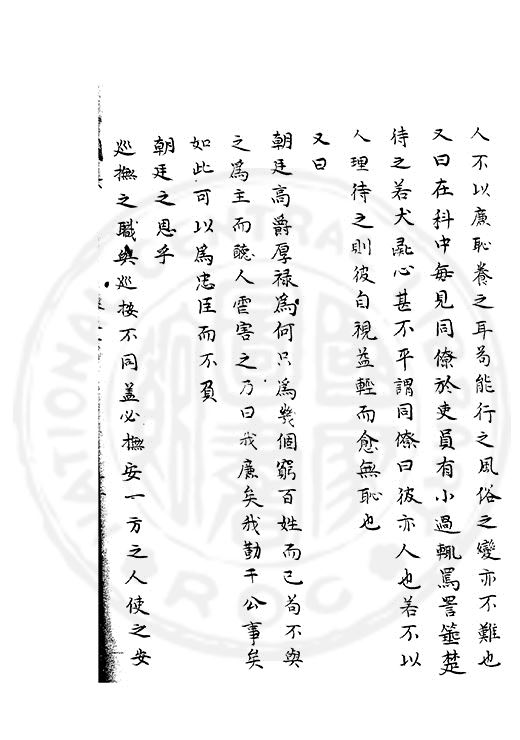 人不以廉恥養之耳苟能行之風俗之變亦不難也
又曰在科中每見同僚於吏員有小過輒罵詈箠楚
待之若犬彘心甚不平謂同僚曰彼亦人也若不以
人理待之則彼自視益輕而愈無恥也
又曰
朝廷高爵厚祿為何只為幾個窮百姓而已苟不與
之為主而聽人害之乃曰我廉矣我勤于公事矣
如此可以為忠臣而不負
朝廷之恩乎
巡撫之職與巡按不同盖必撫安一方之人使之安